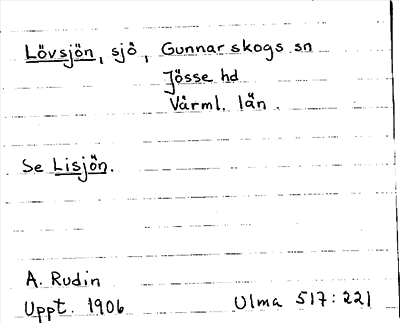 Lövsjön, sjö, Gunnarskogs sn
Jösse hd
Värml. län.
Se Lisjön.
A. Rudin
Uppt. 1906
Ulma 517:221